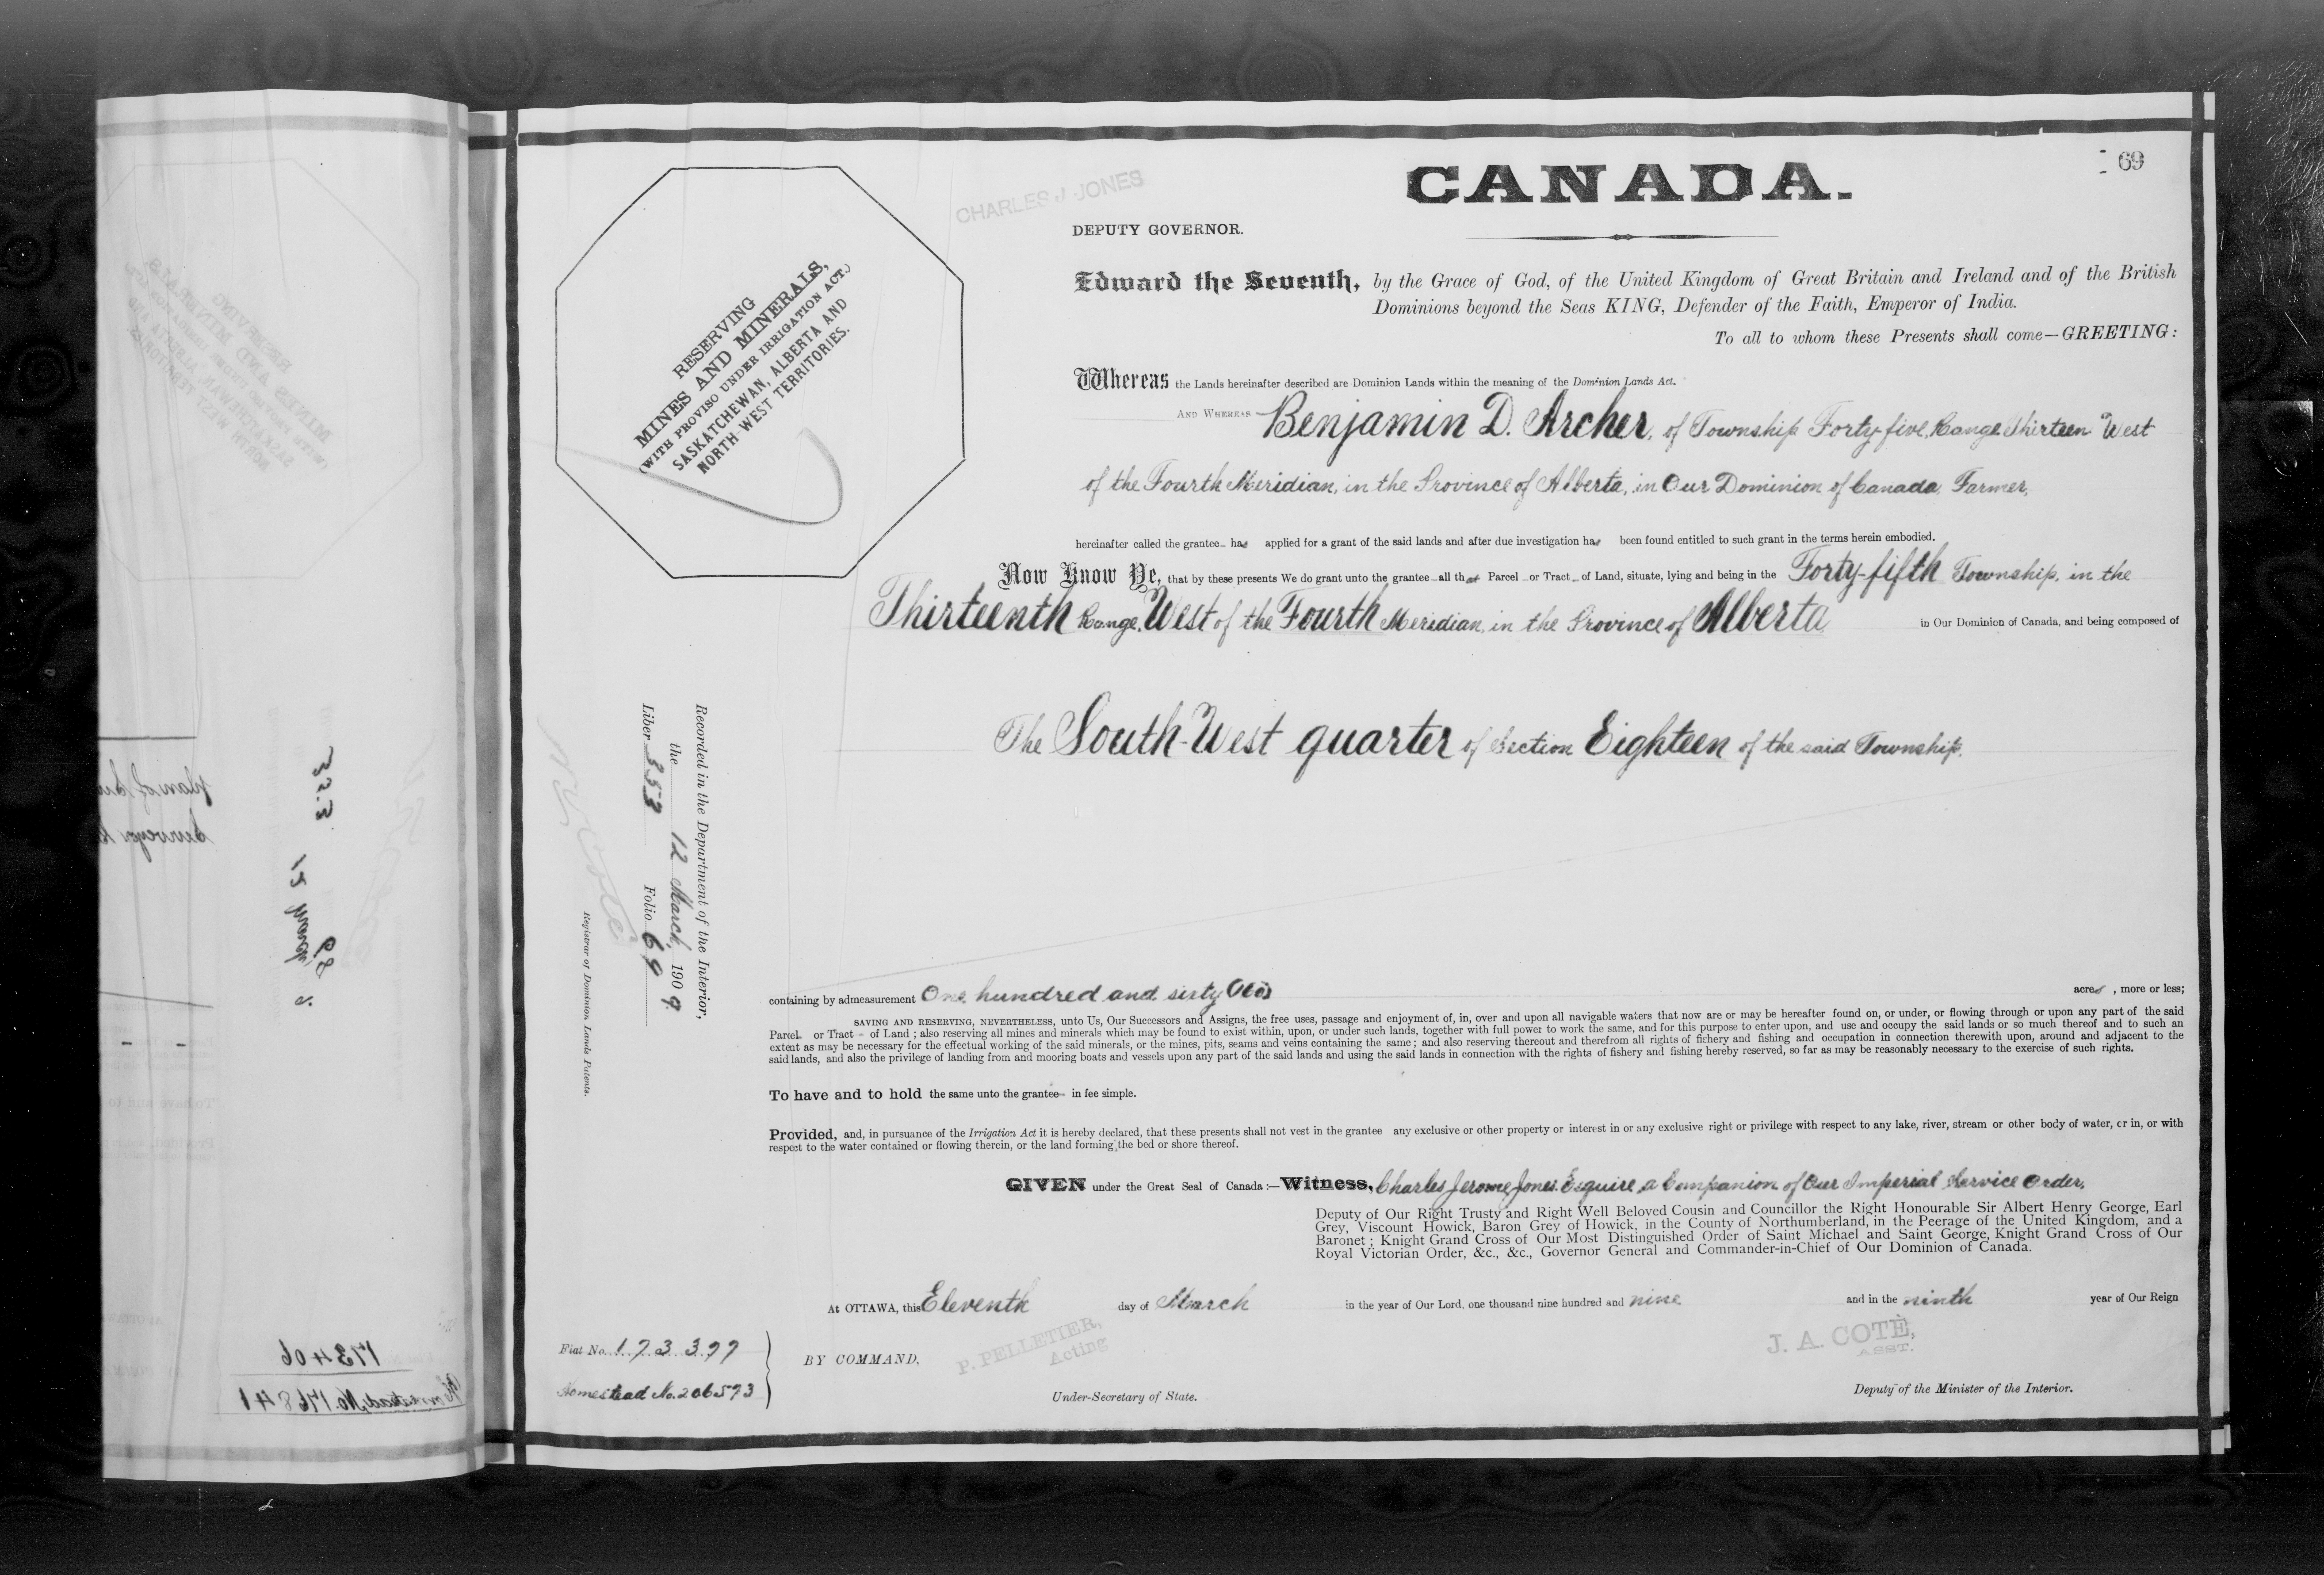 69
CANADA.
CHARLES J. JONES
DEPUTY GOVERNOR.
RESERVING
MINES AND MINERALS,
(WITH PROVISO UNDER IRRIGATION ACT.)
SASKATCHEWAN, ALBERTA AND
NORTH-WEST TERRITORIES.
Edward the Seventh, by the Grace of God, of the United Kingdom of Great Britain and Ireland and of the British
Dominions beyond the Seas KING, Defender of the Faith, Emperor of India.
To all to whom these Presents shall come—GREETING:
Whereas the Lands hereinafter described are Dominion Lands within the meaning of the Dominion Lands Act.
AND WHEREAS Benjamin D. Archer, of Township Forty-five, Range Thirteen West
of the Fourth Meridian, in the Province of Alberta, in Our Dominion of Canada, Farmer,
hereinafter called the grantee has applied for a grant of the said lands and after due investigation has been found entitled to such grant in the terms herein embodied.
Now Know Ye, that by these presents We do grant unto the grantee all that Parcel or Tract of Land, situate, lying and being in the Forty-fifth Township, in the
Thirteenth Range, West of the Fourth Meridian, in the Province of Alberta in Our Dominion of Canada, and being composed of
The South-West quarter of Section Eighteen of the said Township,
Recorded in the Department of the Interior,
the 12 March, 1909.
Liber 353 Folio 69
Registrar of Dominion Lands Patents.
containing by admeasurement One hundred and sixty acres, more or less;
SAVING AND RESERVING, NEVERTHELESS, unto Us, Our Successors and Assigns, the free uses, passage and enjoyment of, in, over and upon all navigable waters that now are or may be hereafter found on, or under, or flowing through or upon any part of the said
Parcel or Tract of Land; also reserving all mines and minerals which may be found to exist within, upon, or under such lands, together with full power to work the same, and for this purpose to enter upon, and use and occupy the said lands or so much thereof and to such an
extent as may be necessary for the effectual working of the said minerals, or the mines, pits, seams and veins containing the same; and also reserving thereout and therefrom all rights of fishery and fishing and occupation in connection therewith upon, around and adjacent to the
said lands, and also the privilege of landing from and mooring boats and vessels upon any part of the said lands and using the said lands in connection with the rights of fishery and fishing hereby reserved, so far as may be reasonably necessary to the exercise of such rights.
To have and to hold the same unto the grantee in fee simple.
Provided, and, in pursuance of the Irrigation Act it is hereby declared, that these presents shall not vest in the grantee any exclusive or other property or interest in or any exclusive right or privilege with respect to any lake, river, stream or other body of water, or in, or with
respect to the water contained or flowing therein, or the land forming the bed or shore thereof.
GIVEN under the Great Seal of Canada:—Witness, Charles Jerome Jones, Esquire, a Companion of Our Imperial Service Order,
Deputy of Our Right Trusty and Right Well Beloved Cousin and Councillor the Right Honourable Sir Albert Henry George, Earl
Grey, Viscount Howick, Baron Grey of Howick, in the County of Northumberland, in the Peerage of the United Kingdom, and a
Baronet; Knight Grand Cross of Our Most Distinguished Order of Saint Michael and Saint George, Knight Grand Cross of Our
Royal Victorian Order, &c., &c., Governor General and Commander-in-Chief of Our Dominion of Canada.
At OTTAWA, this Eleventh day of March in the year of Our Lord, one thousand nine hundred and nine and in the ninth year of Our Reign
Fiat No. 173397
Homestead No. 206573
BY COMMAND,
P. PELLETIER,
Acting
Under-Secretary of State.
J. A. COTÉ,
ASST.
Deputy of the Minister of the Interior.
173406
Homestead No. 176841